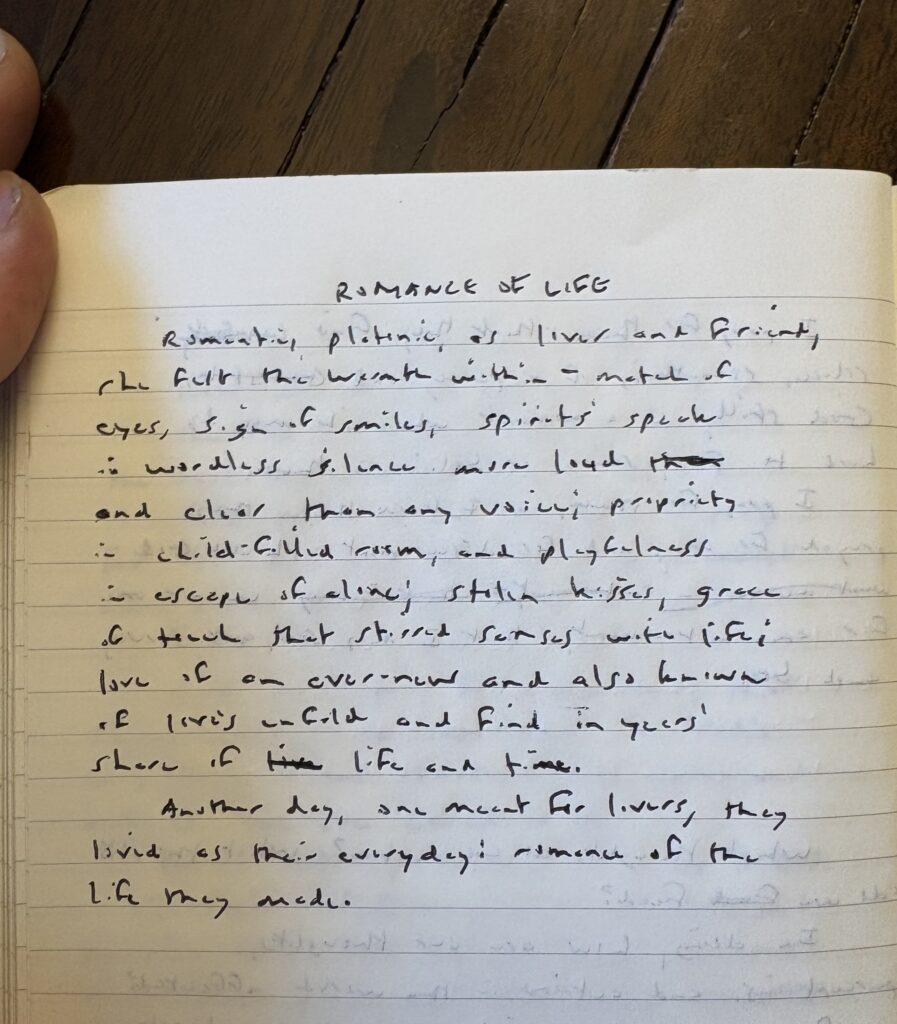 ROMANCE OF LIFE
Romantic, platonic, as lover and friend,
she felt the warmth within - match of
eyes, sign of smiles, spirits' speak
in wordless silence more loud
and clear than any voice; propriety
in child-filled room, and playfulness
in escape of alone; stolen kisses, grace
of touch that stirred senses with life;
love of an ever-new and also known
of lives unfold and find in years'
share of life and time.
Another day, one meant for lovers, they
loved as their everyday: romance of the
life they made.